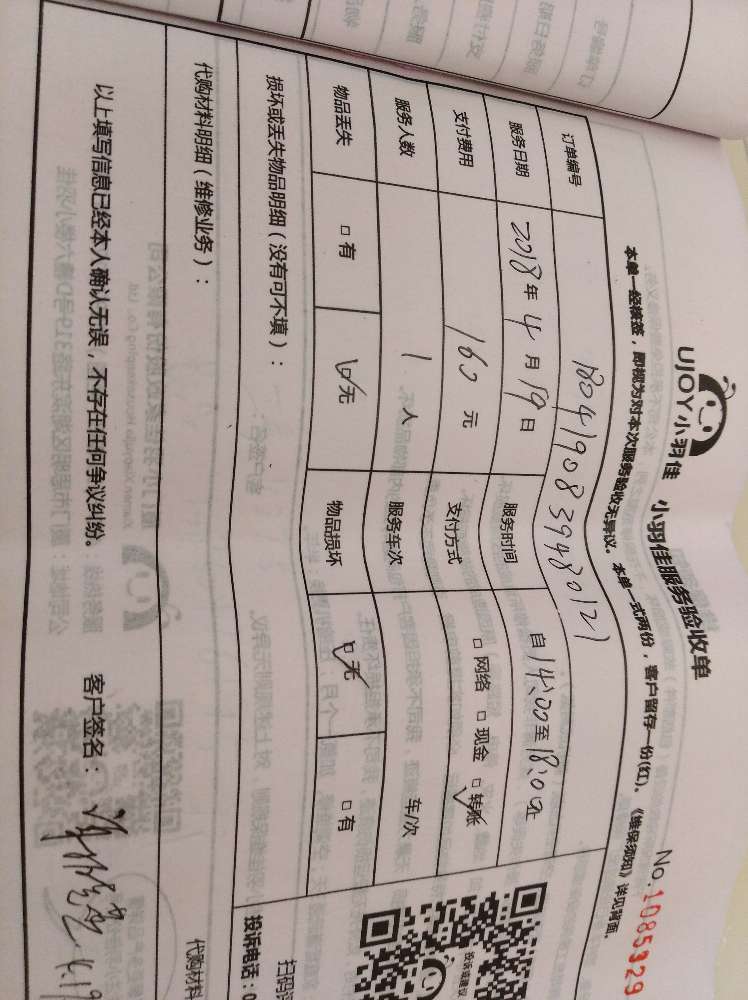 UJOY小羽佳
小羽佳服务验收单
No.1085329
本单一经接签，即视为对本次服务验收无异议。 本单一式两份，客户留存一份(红)。《维保须知》详见背面。
订单编号 1804190839480121
服务日期 2018年4月19日 服务时间 自14:00至18:00止
支付费用 160元 支付方式 □网络 □现金 □转账
服务人数 1人 服务车次 车/次
物品丢失 □有 □无 物品损坏 □无 □有
损坏或丢失物品明细（没有可不填）：
代购材料明细（维修业务）：
代购材料
以上填写信息已经本人确认无误，不存在任何争议纠纷。 客户签名： 4.19
投诉或建议
扫码
投诉电话：0